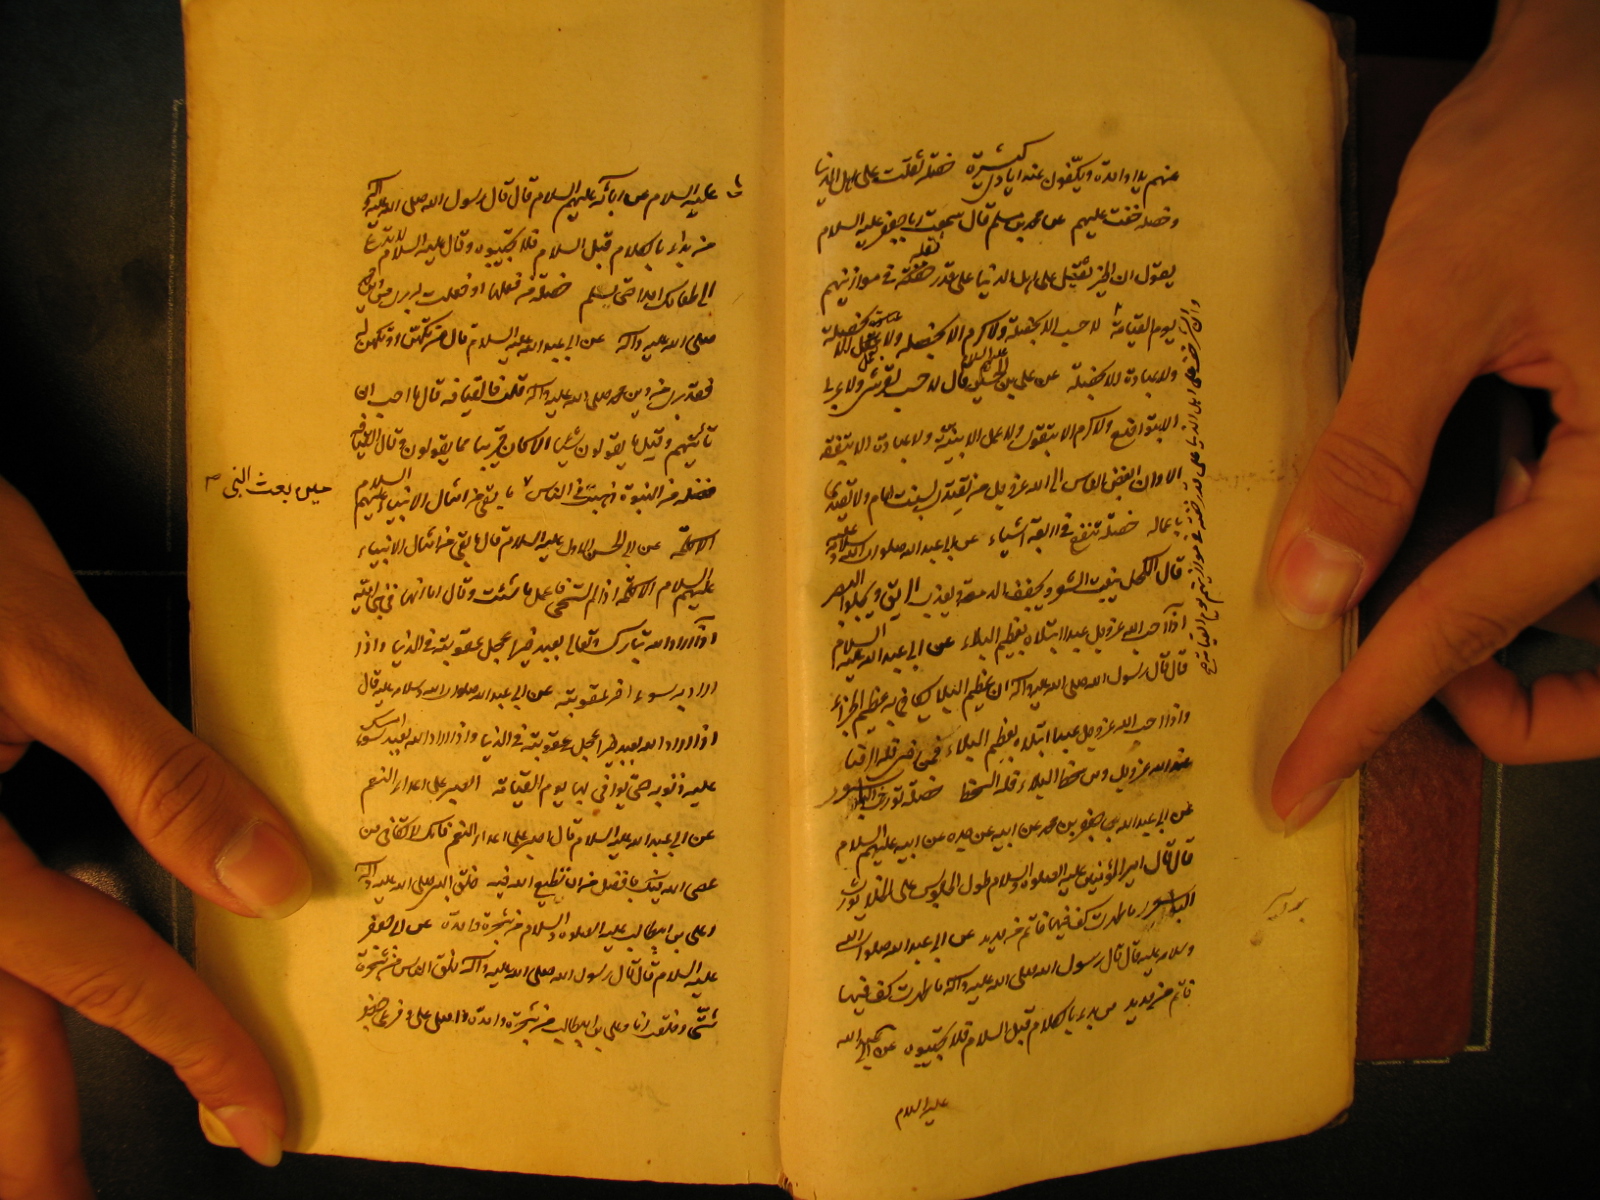 عنهم يدا واحدة ويكفون عنه ايادي كثيرة خصلة ثقلت على اهل الدنيا
وخصلة خفت عليهم عن محمد بن مسلم قال سمعت ابا جعفر عليه السلام
يقول ان الخير يثقل على اهل الدنيا على قدر ثقله في موازينهم
يوم القيمة لا حسب الا بخصلة ولا كرم الا بخصلة ولا عمل الا بخصلة
ولا عبادة الا بخصلة عن علي بن الحسين عليه السلام قال لا حسب لقرشي ولا عربي
الا بتواضع ولا كرم الا بتقوى ولا عمل الا بنية ولا عبادة الا بتفقه
الا وان ابغض الناس الى الله عز وجل من يقتدي بسنة امام ولا يقتدي
باعماله خصلة تنفع في اربعة اشياء عن ابي عبد الله صلوات الله وسلامه عليه
قال الكحل ينبت الشعر ويجفف الدمعة ويعذب الريق ويجلو البصر
اذا احب الله عز وجل عبدا ابتلاه بعظيم البلاء عن ابي عبد الله عليه السلام
قال قال رسول الله صلى الله عليه وآله ان عظيم البلاء يكافى به عظيم الجزاء
واذا احب الله عز وجل عبدا ابتلاه بعظيم البلاء فمن رضي فله الرضا
عند الله عز وجل ومن سخط البلاء فله السخط خصلة تورث الباسور
عن ابي عبد الله جعفر بن محمد عن ابيه عن جده عن ابيه عليهم السلام
قال قال امير المؤمنين عليه الصلوة والسلام طول الجلوس على الخلاء يورث
الباسور ما طهرت كف فيها خاتم من حديد عن ابي عبد الله صلوات الله
وسلامه عليه قال قال رسول الله صلى الله عليه وآله ما طهرت كف فيها
خاتم من حديد من بدء بالكلام قبل السلام فلا تجيبوه عن ابي عبد الله
عليه السلام
وان الشر خف على اهل الدنيا على قدر خفته في موازينهم يوم القيامة
عليه السلام عن آبائه عليهم السلام قال قال رسول الله صلى الله عليه وآله
من بدء بالكلام قبل السلام فلا تجيبوه وقال عليه السلام لا تدع
الى طعامك احدا حتى يسلم خصلة من فعلها او فعلت له برئ من دين محمد
صلى الله عليه وآله عن ابي عبد الله عليه السلام قال من تكهن او تكهن له
فقد برئ من دين محمد صلى الله عليه وآله قلت فالقيافة قال ما احب ان
تأتيهم وقيل ما يقولون شيئا الا كان قريبا مما يقولون وقال القيافة
فضلة من النبوة ذهبت في الناس ما بقي من امثال الانبياء عليهم السلام
حين بعث النبي ص
الا كلمة عن ابي الحسن الاول عليه السلام قال ما بقي من امثال الانبياء
عليهم السلام الا كلمة اذا لم تستحي فاعمل ما شئت وقال اما انها في بني امية
اذا اراد الله تبارك وتعالى بعبد خيرا عجل عقوبته في الدنيا واذا
اراد به سوء اخر عقوبته عن ابي عبد الله صلوات الله وسلامه عليه قال
اذا اراد الله بعبد خيرا عجل عقوبته في الدنيا واذا اراد الله بعبد سوء امسك
عليه ذنوبه حتى يوافي بها يوم القيامة الصبر على اعداء النعم
عن ابي عبد الله عليه السلام قال اصبر على اعداء النعم فانك لن تكافي من
عصى الله فيك بافضل من ان تطيع الله فيه خلق النبي صلى الله عليه وآله
وعلي بن ابيطالب عليه الصلوة والسلام من شجرة واحدة عن ابي جعفر
عليه السلام قال قال رسول الله صلى الله عليه وآله خلق الناس من شجرة
شتى وخلقت انا وعلي بن ابيطالب من شجرة واحدة اصلي علي وفرعي جعفر